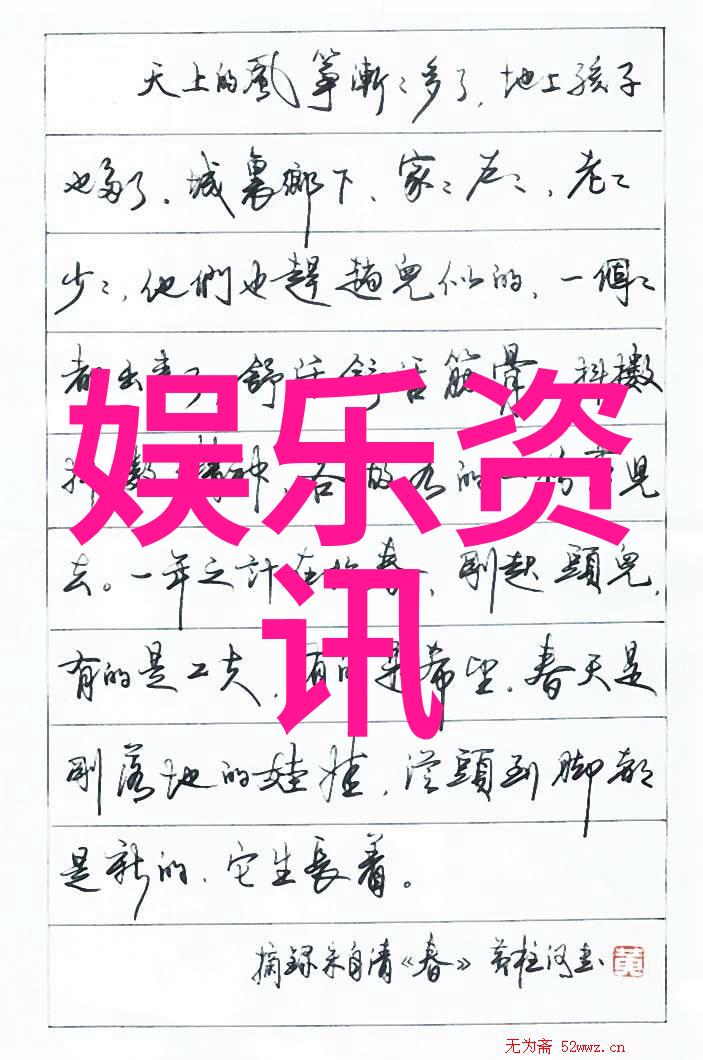 天上的風箏漸〻多了，地上孩子
也多了。城裏鄉下、家〻户〻，老〻
少〻，他們也趕趟兒似的，一個〻
都出来了。舒活舒活筋骨，抖擻
抖擻精神，各的一份事兒
去。一年之計在於春，剛起頭兒，
有的是工夫，有的是希望。春天是
剛落地的娃娃，從頭到脚都
是新的，它生長着。
摘録朱自清《春》 黄柱河書 黄
娱乐资
讯
无为斋 52wwz.cn